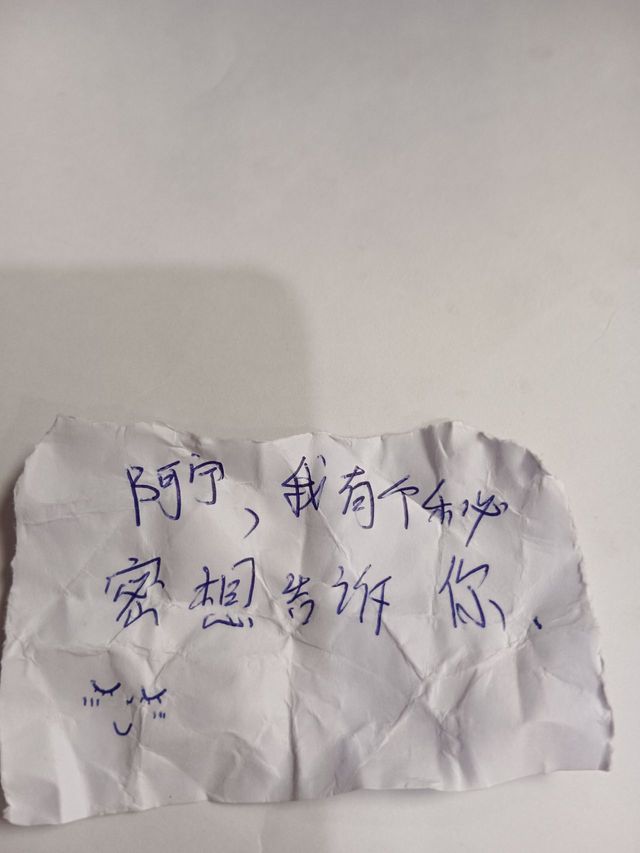 阿宁,我有个秘
密想告诉你.